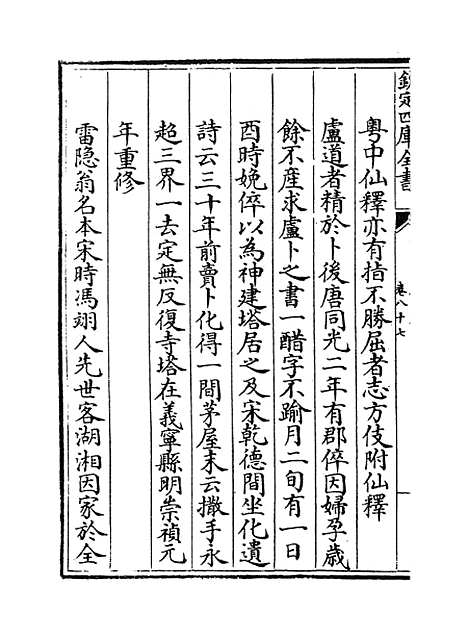 欽定四庫全書
卷八十七
粤中仙釋亦有指不勝屈者志方伎附仙釋
盧道者精於卜後唐同光二年有郡倅因婦孕歳
餘不産求盧卜之書一醋字不踰月二旬有一日
酉時娩倅以為神建塔居之及宋乾德間坐化遺
詩云三十年前賣卜化得一間茅屋末云撒手永
超三界一去定無反復寺塔在義寧縣明崇禎元
年重修
雷隐翁名本宋時馮翊人先世客湖湘因家於全